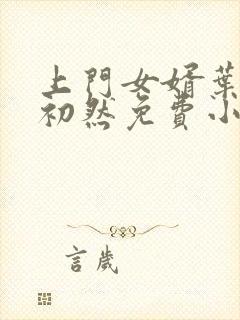 上門女婿葉
初然免費小
言歲